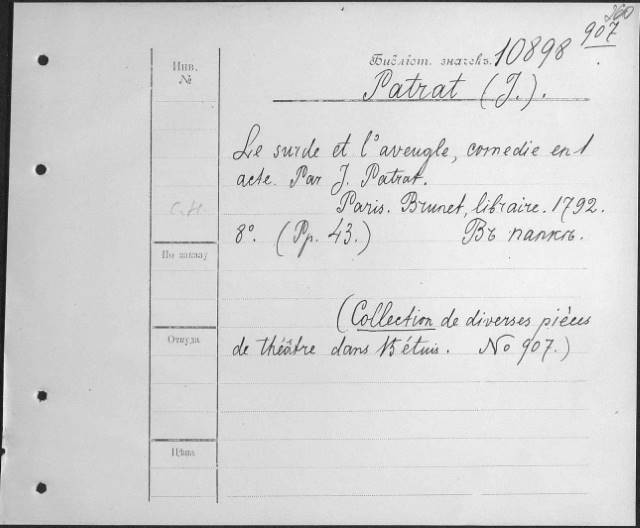 260
907
Инв. №
Библіот. значекъ. 10898
Patrat (J.).
Le surde et l'aveugle, comedie en 1
acte. Par J. Patrat.
Paris. Brunet, libraire. 1792.
8°. (Pp. 43.) Въ папкѣ.
По заказу
(Collection de diverses pièces
Откуда
de théâtre dans 15 étuis. No 907.)
Цѣна